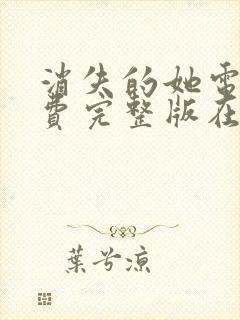 消失的她電
費完整版在
葉兮涼